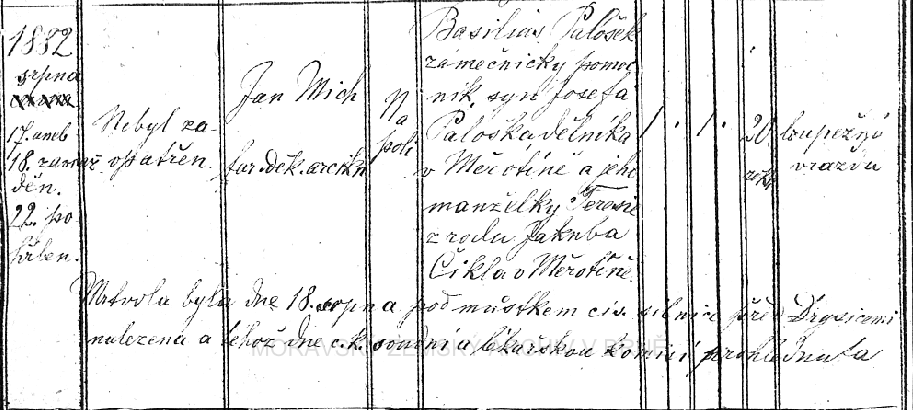 1882
srpna
17. aneb
18. zavraž
děn.
22. po
hřben.
Nebyl za-
opatřen
Jan Mich
far. děk. arcikn
Na
poli
Basilius Palošek
zámečnický pomoc
ník, syn Josefa
Paloška, dělníka
v Měrotíně a jeho
manželky Teresie
z rodu Jakuba
Čikla v Měrotíně
1. 1.
20
roků
loupežný
vražda
Mrtvola byla dne 18. srpna pod můstkem cís. silnice před Drysicemi
nalezena a téhož dne c.k. soudní a lékarskou komisí prohlédnuta
MORAVSKÝ ZEMSKÝ ARCHIV V BRNĚ